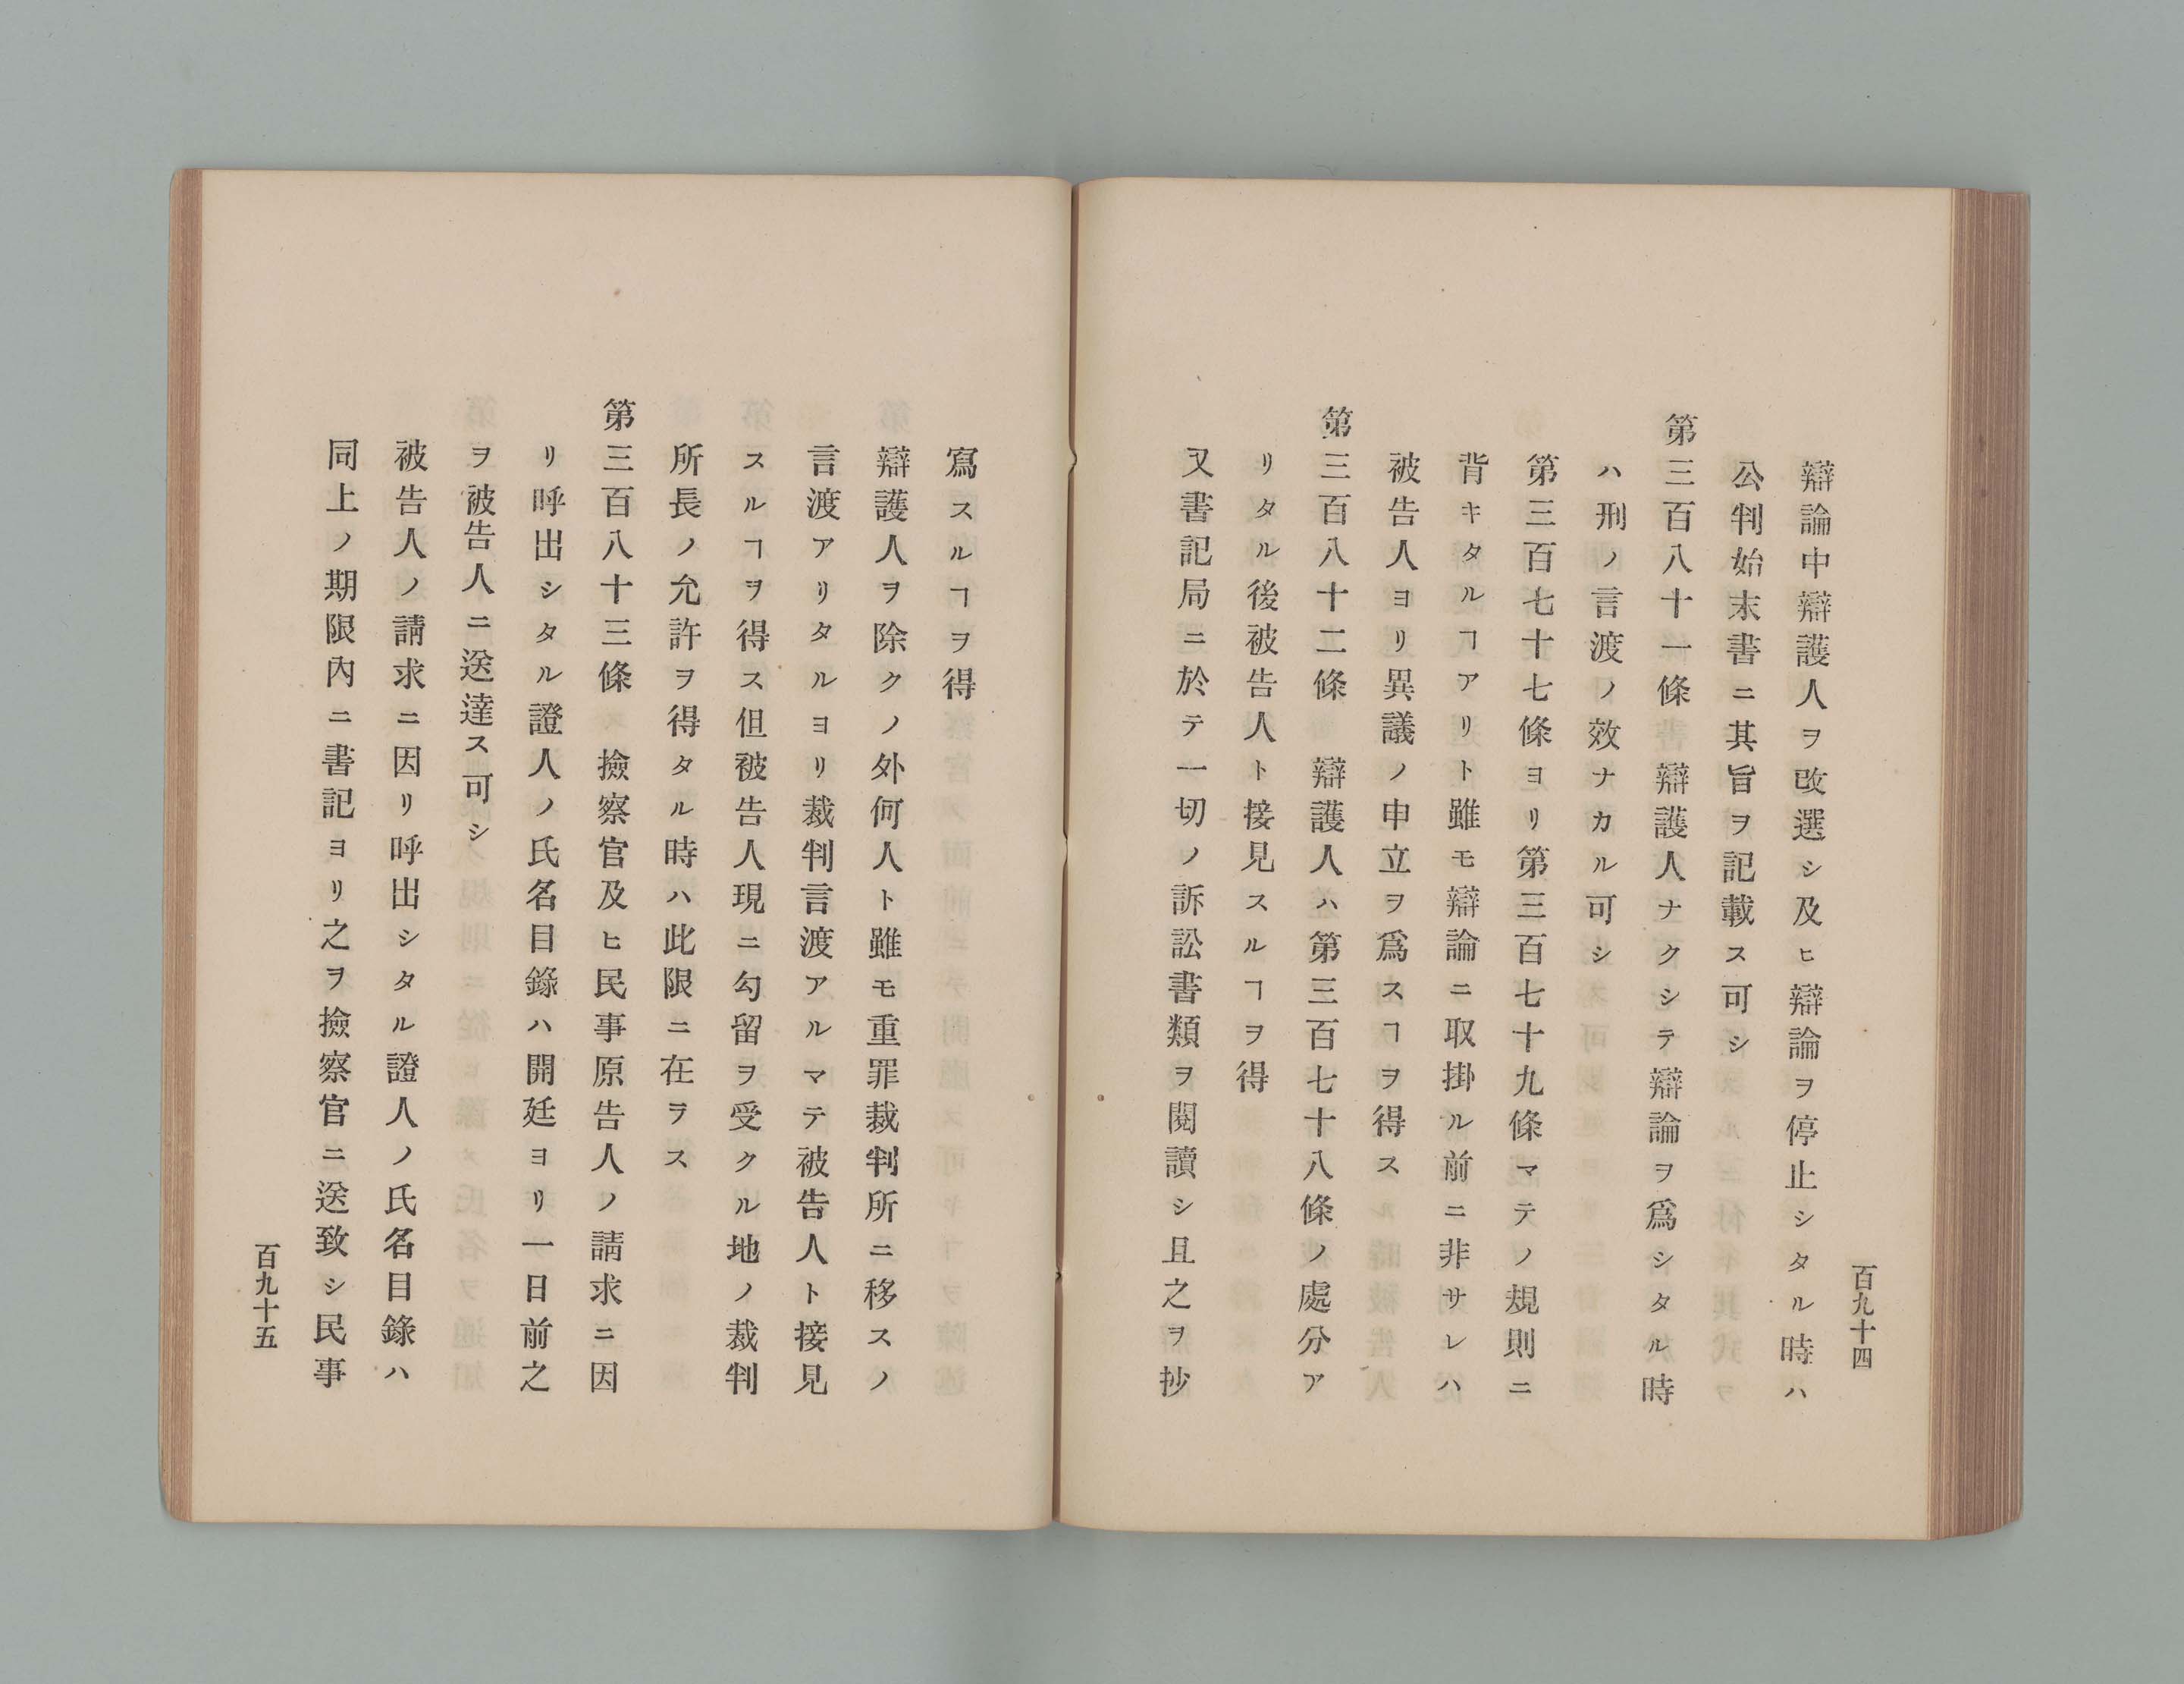 百九十四
辯論中辯護人ヲ改選シ及ヒ辯論ヲ停止シタル時ハ
公判始末書ニ其旨ヲ記載ス可シ
第三百八十一條　辯護人ナクシテ辯論ヲ爲シタル時
ハ刑ノ言渡ノ效ナカル可シ
第三百七十七條ヨリ第三百七十九條マテノ規則ニ
背キタルヿアリト雖モ辯論ニ取掛ル前ニ非サレハ
被告人ヨリ異議ノ申立ヲ爲スヿヲ得ス
第三百八十二條　辯護人ハ第三百七十八條ノ處分ア
リタル後被告人ト接見スルヿヲ得
又書記局ニ於テ一切ノ訴訟書類ヲ閱讀シ且之ヲ抄
寫スルヿヲ得
辯護人ヲ除クノ外何人ト雖モ重罪裁判所ニ移スノ
言渡アリタルヨリ裁判言渡アルマテ被告人ト接見
スルヿヲ得ス但被告人現ニ勾留ヲ受クル地ノ裁判
所長ノ允許ヲ得タル時ハ此限ニ在ラス
第三百八十三條　撿察官及ヒ民事原告人ノ請求ニ因
リ呼出シタル證人ノ氏名目錄ハ開廷ヨリ一日前之
ヲ被告人ニ送達ス可シ
被告人ノ請求ニ因リ呼出シタル證人ノ氏名目錄ハ
同上ノ期限內ニ書記ヨリ之ヲ撿察官ニ送致シ民事
百九十五